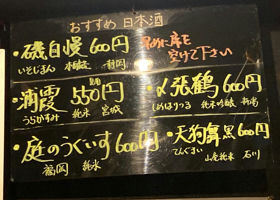 おすすめ 日本酒
・磯自慢 600円
いそじまん 本醸造 静岡
早めに席を
空けて下さい
・浦霞 550円
うらかすみ 純米 宮城
・〆張鶴 600円
しめはりつる 純米吟醸 新潟
・庭のうぐいす 600円
福岡 純米
・天狗舞 黒 600円
てんぐまい 山廃純米 石川